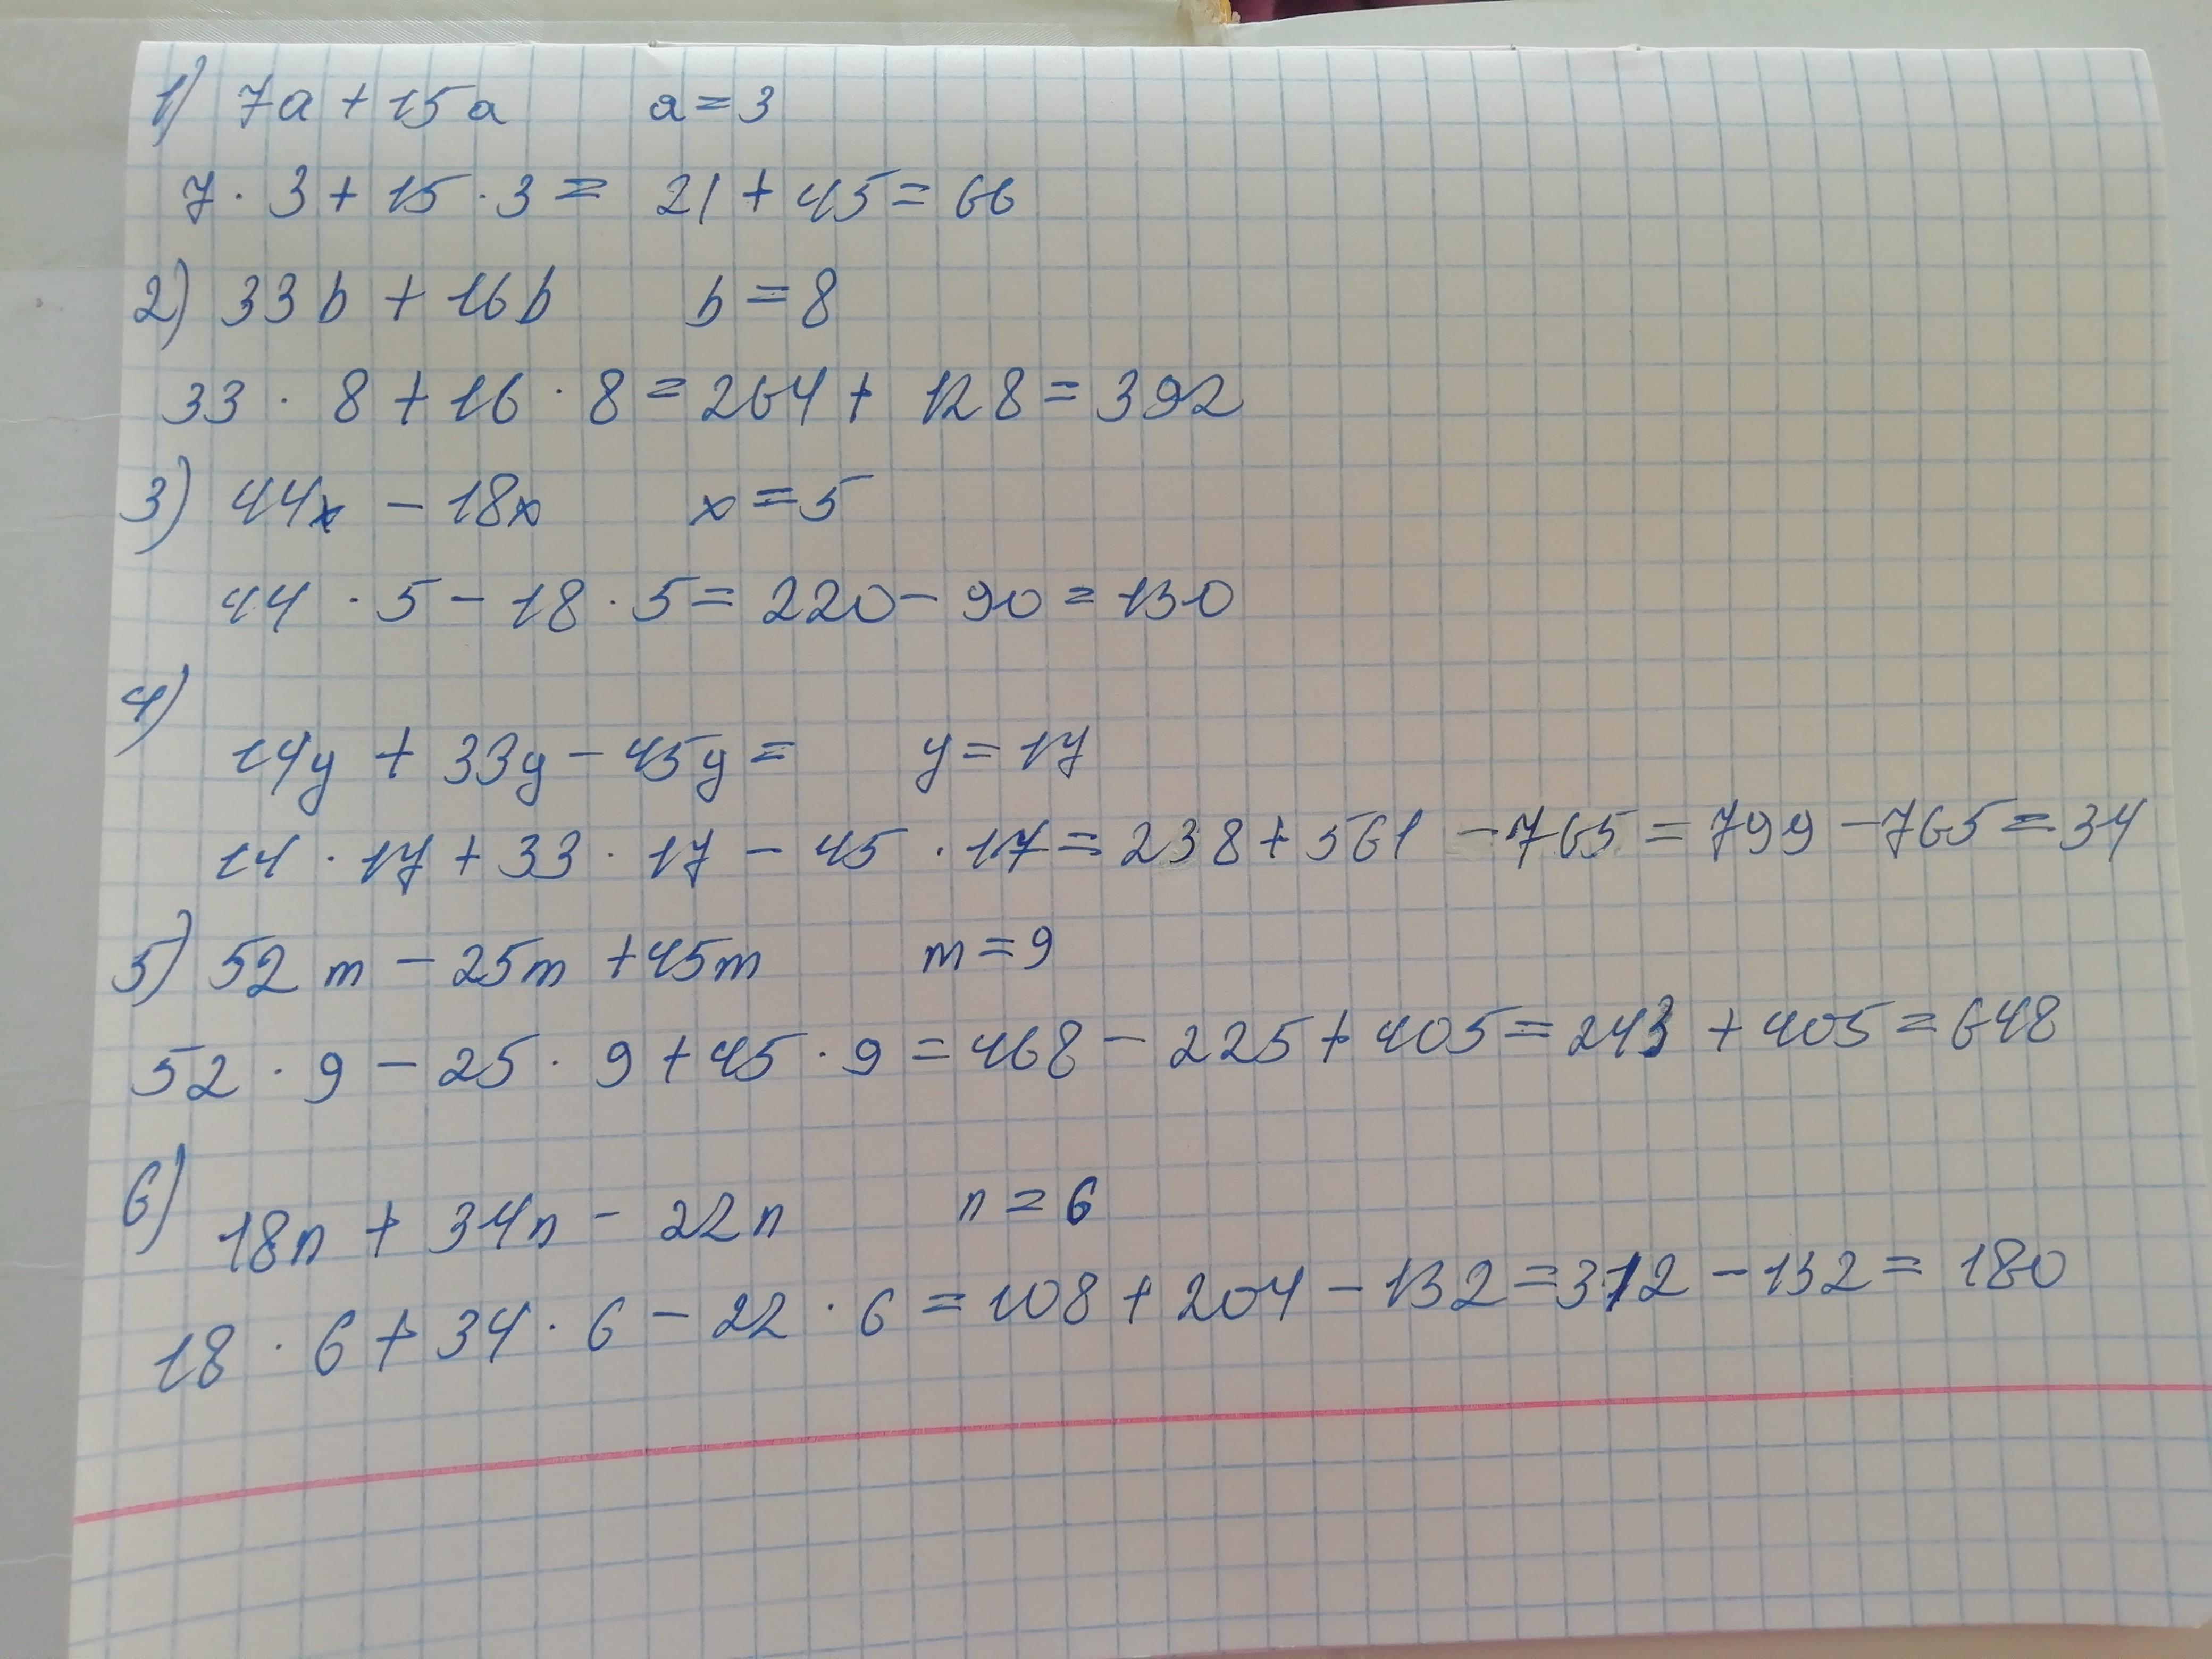 1) 7a + 15a a = 3
7 · 3 + 15 · 3 = 21 + 45 = 66
2) 33b + 16b b = 8
33 · 8 + 16 · 8 = 264 + 128 = 392
3) 44x - 18x x = 5
44 · 5 - 18 · 5 = 220 - 90 = 130
4)
14y + 33y - 45y = y = 17
14 · 17 + 33 · 17 - 45 · 17 = 238 + 561 - 765 = 799 - 765 = 34
5) 52m - 25m + 45m m = 9
52 · 9 - 25 · 9 + 45 · 9 = 468 - 225 + 405 = 243 + 405 = 648
6)
18n + 34n - 22n n = 6
18 · 6 + 34 · 6 - 22 · 6 = 108 + 204 - 132 = 312 - 132 = 180